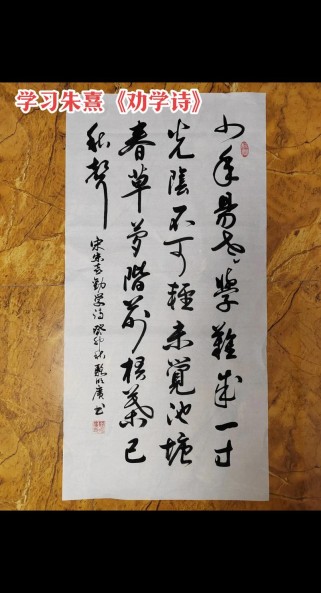 学习朱熹《劝学诗》
少年易老學難成一寸
光陰不可輕未覺池塘
春草夢階前梧葉已
秋聲
宋朱熹勸學詩 癸卯秋 書